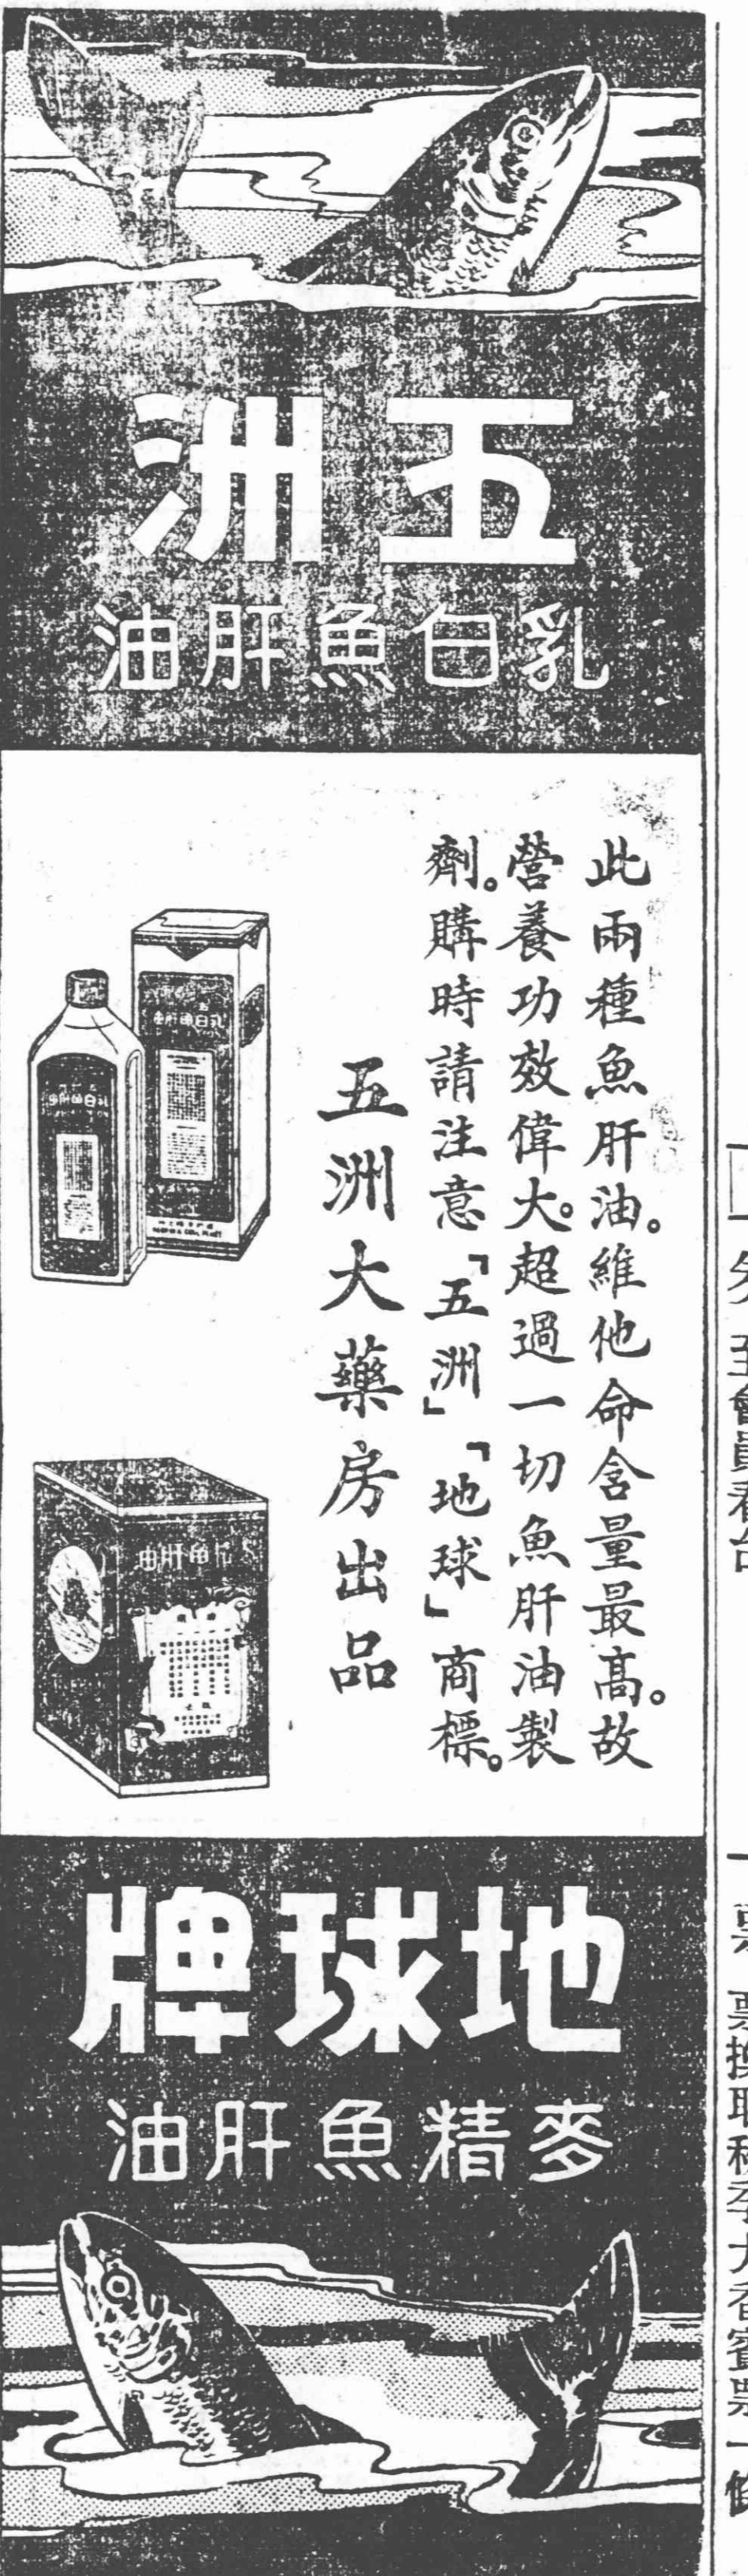 五洲
乳白魚肝油
此兩種魚肝油。維他命含量最高。故
營養功效偉大。超過一切魚肝油製
劑。購時請注意「五洲」「地球」商標。
五洲大藥房出品
乳白魚肝油
乳白魚肝油
地球牌
麥精魚肝油